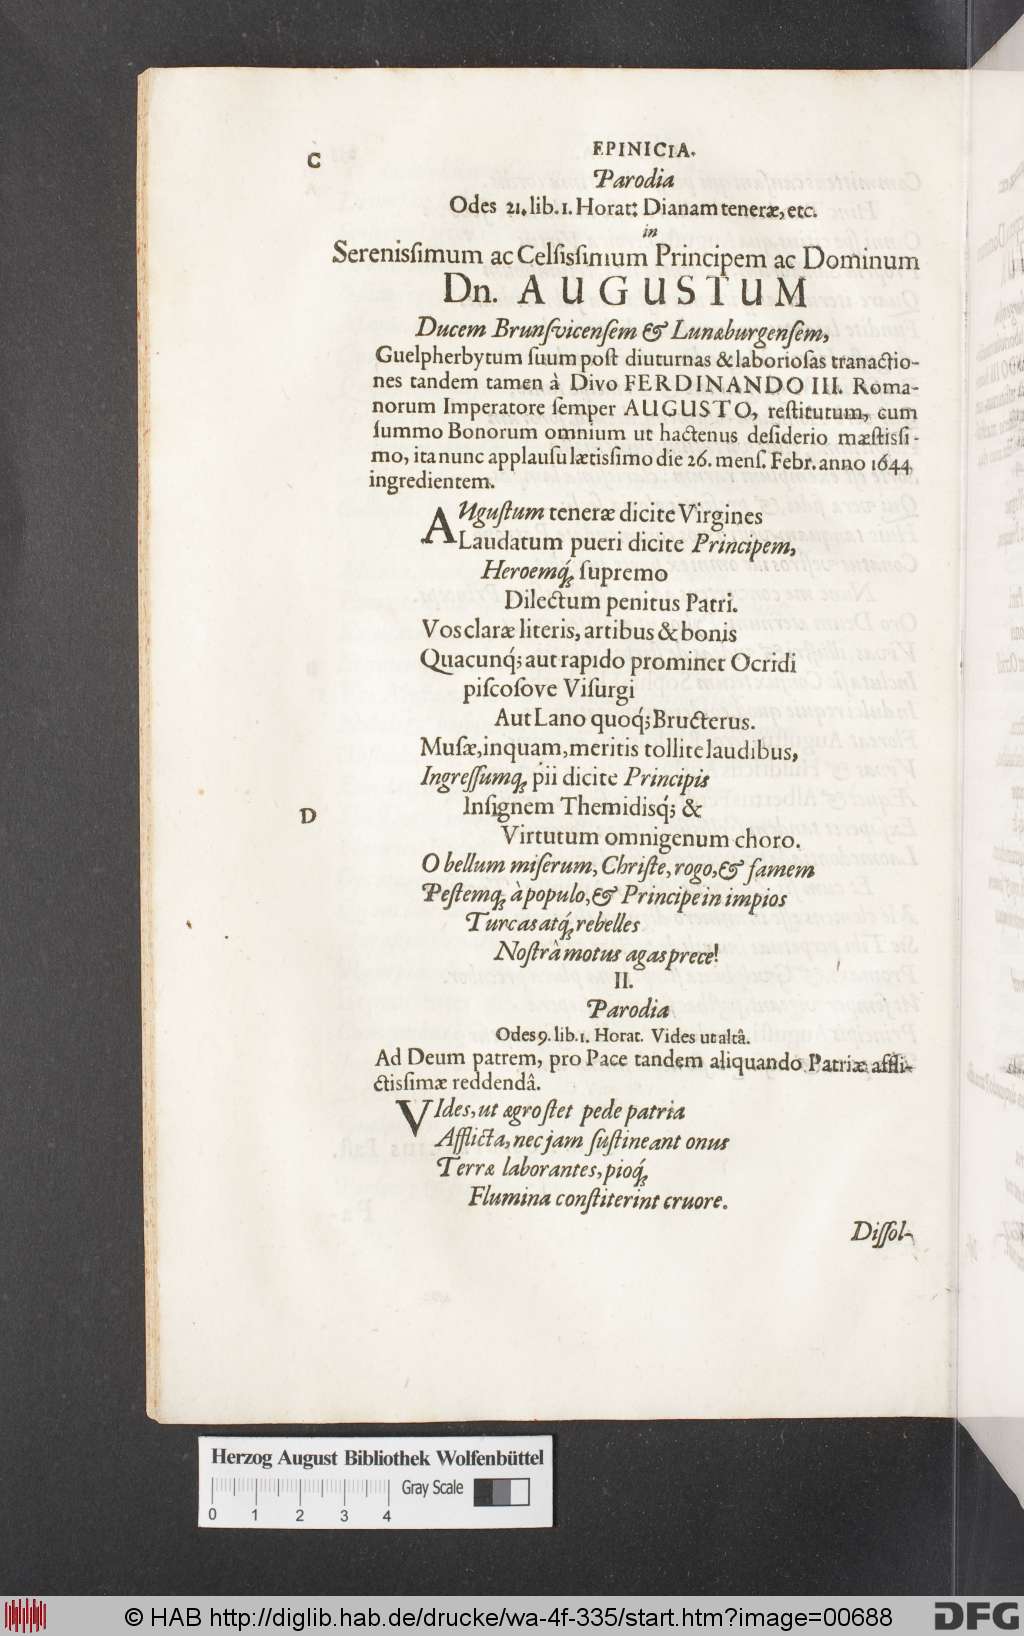 C
EPINICIA.
Parodia
Odes 21. lib. 1. Horat: Dianam teneræ, etc.
in
Serenisſimum ac Celſisſimum Principem ac Dominum
Dn. AUGUSTUM
Ducem Brunſvicenſem & Lunæburgenſem,
Guelpherbytum ſuum poſt diuturnas & laborioſas tranactio-
nes tandem tamen à Divo FERDINANDO III. Roma-
norum Imperatore ſemper AUGUSTO, reſtitutum, cum
ſummo Bonorum omnium ut hactenus deſiderio mæſtisſi-
mo, ita nunc applauſu lætisſimo die 26. menſ. Febr. anno 1644
ingredientem.
AUguſtum teneræ dicite Virgines
Laudatum pueri dicite Principem,
Heroemq́; ſupremo
Dilectum penitus Patri.
Vos claræ literis, artibus & bonis
Quacunq́; aut rapido prominet Ocridi
piſcoſove Viſurgi
Aut Lano quoq́; Bructerus.
Muſæ, inquam, meritis tollite laudibus,
Ingreſſumq; pii dicite Principis
Inſignem Themidisq́; &
D
Virtutum omnigenum choro.
O bellum miſerum, Chriſte, rogo, & famem
Peſtemq; à populo, & Principe in impios
Turcas atq́; rebelles
Noſtrâ motus agas prece!
II.
Parodia
Odes 9. lib. 1. Horat. Vides ut altâ.
Ad Deum patrem, pro Pace tandem aliquando Patriæ affli-
ctisſimæ reddendâ.
VIdes, ut ægro ſtet pede patria
Afflicta, nec jam ſuſtineant onus
Terræ laborantes, pioq́;
Flumina conſtiterint cruore.
Diſſol-
Herzog August Bibliothek Wolfenbüttel
Gray Scale
0 1 2 3 4
© HAB http://diglib.hab.de/drucke/wa-4f-335/start.htm?image=00688
DFG